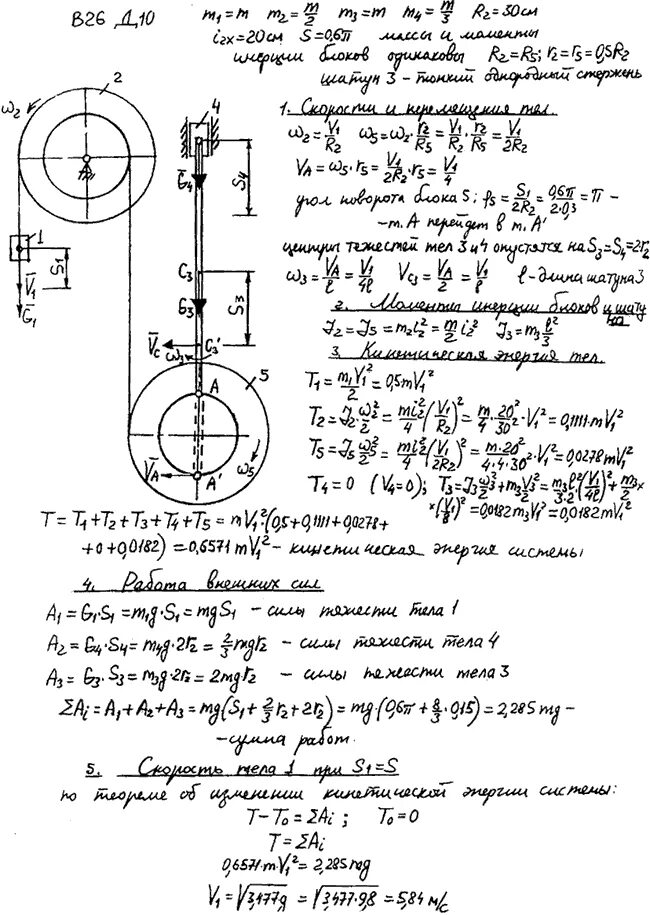 В26 Д.10
m₁=m m₂=m/2 m₃=m m₄=m/3 R₂=30см
i₂ₓ=20см S=0,6π массы и моменты
инерции блоков одинаковы R₂=R₅; r₂=r₅=0,5R₂
шатун 3 – тонкий однородный стержень
2
ω₂
1
S₁
V̄₁
Ḡ₁
4
Ḡ₄
S₄
C₃
G₃
S₃
V̄c
C₃'
ω₃
5
A
V̄A
A'
ω₅
1. Скорости и перемещения тел.
ω₂=V₁/R₂ ω₅=ω₂·r₂/R₅=V₁/R₂·r₂/R₅=V₁/2R₂
VA=ω₅·r₅=V₁/2R₂·r₅=V₁/4
угол поворота блока 5: φ₅=S₁/2R₂=0,6π/2·0,3=π –
– т. А перейдет в т. А'
центры тяжестей тел 3 и 4 опустятся на S₃=S₄=2r₂
ω₃=VA/l=V₁/4l Vc₃=VA/2=V₁/8 l – длина шатуна 3
2. Моменты инерции блоков и шатуна
J₂=J₅=m₂i₂²=m/2 i₂² J₃=m₃l²/3
3. Кинетическая энергия тел.
T₁=m₁V₁²/2=0,5mV₁²
T₂=J₂·ω₂²/2=mi₂²/4(V₁/R₂)²=m/4·20²/30²·V₁²=0,1111·mV₁²
T₅=J₅ω₅²/2=mi₂²/4(V₁/2R₂)²=m·20²/4·4·30²·V₁²=0,0278mV₁²
T₄=0 (V₄=0); T₃=J₃ω₃²/2+m₃V₃²/2=m₃l²/3·2(V₁/4l)²+m₃/2×
×(V₁/8)²=0,0182m₃V₁²=0,0182mV₁²
T=T₁+T₂+T₃+T₄+T₅=mV₁²·(0,5+0,1111+0,0278+
+0+0,0182)=0,6571mV₁² – кинетическая энергия системы
4. Работа внешних сил
A₁=G₁·S₁=m₁g·S₁=mgS₁ – силы тяжести тела 1
A₂=G₄·S₄=m₄g·2r₂=2/3mgr₂ – силы тяжести тела 4
A₃=G₃·S₃=m₃g·2r₂=2mgr₂ – силы тяжести тела 3
ΣAi=A₁+A₂+A₃=mg(S₁+2/3r₂+2r₂)=mg·(0,6π+8/3·0,15)=2,285mg –
– сумма работ.
5. Скорость тела 1 при S₁=S
по теореме об изменении кинетической энергии системы:
T–T₀=ΣAi; T₀=0
T=ΣAi
0,6571·m·V₁²=2,285mg
V₁=√3,477g=√3,477·9,8=5,84 м/с